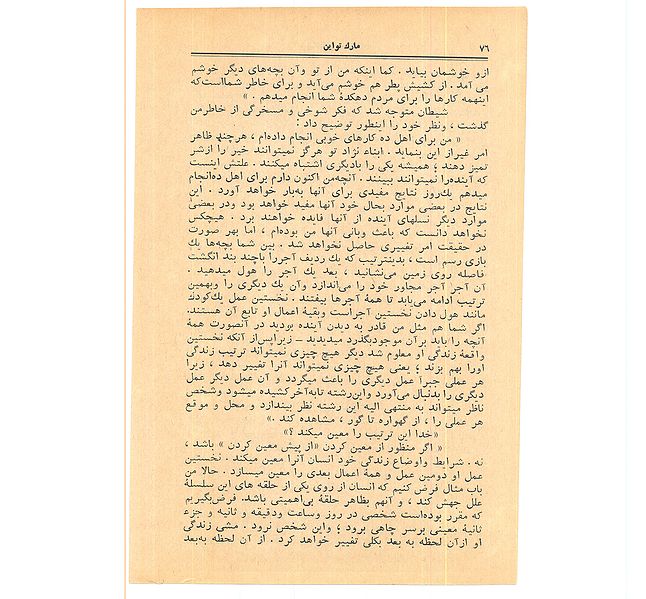 ۷۶
مارك تواین
ازو خوشمان بیاید . کما اینکه من از تو وآن بچه‌های دیگر خوشم
می آمد . از کشیش پطر هم خوشم می‌آید و برای خاطر شماست‌که
اینهمه کارها را برای مردم دهکدهٔ شما انجام میدهم . »
شیطان متوجه شد که فکر شوخی و مسخرگی از خاطرمن
گذشت ، ونظر خود را اینطور توضیح داد :
« من برای اهل ده کارهای خوبی انجام داده‌ام ، هرچند ظاهر
امر غیراز این بنماید . ابناء نژاد تو هرگز نمیتوانند خیر را ازشر
تمیز دهند ؛ همیشه یکی را بادیگری اشتباه میکنند . علتش اینست
که آینده‌را نمیتوانند ببینند . آنچه‌من اکنون دارم برای اهل ده‌انجام
میدهم یك‌روز نتایج مفیدی برای آنها به‌بار خواهد آورد . این
نتایج در بعضی موارد بحال خود آنها مفید خواهد بود ودر بعضی
موارد دیگر نسلهای آینده از آنها فایده خواهند برد . هیچکس
نخواهد دانست که باعث وبانی آنها من بوده‌ام ، اما بهر صورت
در حقیقت امر تغییری حاصل نخواهد شد . بین شما بچه‌ها یك
بازی رسم است ، بدینترتیب که یك ردیف آجررا باچند بند انگشت
فاصله روی زمین می‌نشانید ، بعد یك آجر را هول میدهید .
آن آجر آجر مجاور خود را می‌اندازد وآن یك دیگری را وبهمین
ترتیب ادامه می‌یابد تا همهٔ آجرها بیفتند . نخستین عمل یك‌کودك
مانند هول دادن نخستین آجراست وبقیهٔ اعمال او تابع آن هستند.
اگر شما هم مثل من قادر به دیدن آینده بودید در آنصورت همهٔ
آنچه را باید برآن موجودبگذرد میدیدید ــ زیراپس‌از آنکه نخستین
واقعهٔ زندگی او معلوم شد دیگر هیچ چیزی نمیتواند ترتیب زندگی
اورا بهم بزند ؛ یعنی هیچ چیزی نمیتواند آنرا تغییر دهد ، زیرا
هر عملی جبراً عمل دیگری را باعث میگردد و آن عمل دیگر عمل
دیگری را بدنبال می‌آورد واین‌رشته تابه‌آخرکشیده میشود وشخص
ناظر میتواند به منتهی الیه این رشته نظر بیندازد و محل و موقع
هر عملی را ، از گهواره تا گور ، مشاهده کند .»
«خدا این ترتیب را معین میکند ؟»
« اگر منظور از معین کردن «از پیش معین کردن » باشد ،
نه . شرایط واوضاع زندگی خود انسان آنرا معین میکند . نخستین
عمل او دومین عمل و همهٔ اعمال بعدی را معین میسازد . حالا من
باب مثال فرض کنیم که انسان از روی یکی از حلقه های این سلسلهٔ
علل جهش کند ، و آنهم بظاهر حلقهٔ بی‌اهمیتی باشد. فرض‌بگیریم
که مقرر بوده‌است شخصی در روز وساعت ودقیقه و ثانیه و جزء
ثانیهٔ معینی برسر چاهی برود ؛ واین شخص نرود . مشی زندگی
او ازآن لحظه به بعد بکلی تغییر خواهد کرد . از آن لحظه به‌بعد